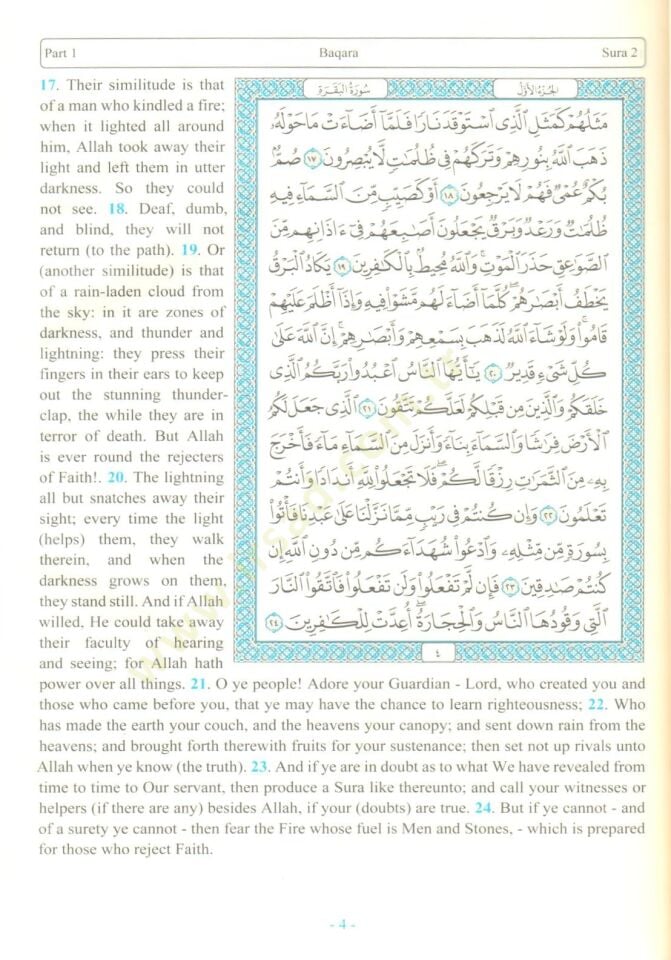 Part 1 Baqara Sura 2
17. Their similitude is that
of a man who kindled a fire;
when it lighted all around
him, Allah took away their
light and left them in utter
darkness. So they could
not see. 18. Deaf, dumb,
and blind, they will not
return (to the path). 19. Or
(another similitude) is that
of a rain-laden cloud from
the sky: in it are zones of
darkness, and thunder and
lightning: they press their
fingers in their ears to keep
out the stunning thunder-
clap, the while they are in
terror of death. But Allah
is ever round the rejecters
of Faith!. 20. The lightning
all but snatches away their
sight; every time the light
(helps) them, they walk
therein, and when the
darkness grows on them,
they stand still. And if Allah
willed, He could take away
their faculty of hearing
and seeing; for Allah hath
power over all things. 21. O ye people! Adore your Guardian - Lord, who created you and
those who came before you, that ye may have the chance to learn righteousness; 22. Who
has made the earth your couch, and the heavens your canopy; and sent down rain from the
heavens; and brought forth therewith fruits for your sustenance; then set not up rivals unto
Allah when ye know (the truth). 23. And if ye are in doubt as to what We have revealed from
time to time to Our servant, then produce a Sura like thereunto; and call your witnesses or
helpers (if there are any) besides Allah, if your (doubts) are true. 24. But if ye cannot - and
of a surety ye cannot - then fear the Fire whose fuel is Men and Stones, - which is prepared
for those who reject Faith.
الجزء الأول سورة البقرة
مَثَلُهُمْ كَمَثَلِ الَّذِي اسْتَوْقَدَ نَارًا فَلَمَّا أَضَاءَتْ مَا حَوْلَهُ
ذَهَبَ اللَّهُ بِنُورِهِمْ وَتَرَكَهُمْ فِي ظُلُمَاتٍ لَا يُبْصِرُونَ ١٧ صُمٌّ
بُكْمٌ عُمْيٌ فَهُمْ لَا يَرْجِعُونَ ١٨ أَوْ كَصَيِّبٍ مِنَ السَّمَاءِ فِيهِ
ظُلُمَاتٌ وَرَعْدٌ وَبَرْقٌ يَجْعَلُونَ أَصَابِعَهُمْ فِي آذَانِهِمْ مِنَ
الصَّوَاعِقِ حَذَرَ الْمَوْتِ وَاللَّهُ مُحِيطٌ بِالْكَافِرِينَ ١٩ يَكَادُ الْبَرْقُ
يَخْطَفُ أَبْصَارَهُمْ كُلَّمَا أَضَاءَ لَهُمْ مَشَوْا فِيهِ وَإِذَا أَظْلَمَ عَلَيْهِمْ
قَامُوا وَلَوْ شَاءَ اللَّهُ لَذَهَبَ بِسَمْعِهِمْ وَأَبْصَارِهِمْ إِنَّ اللَّهَ عَلَى
كُلِّ شَيْءٍ قَدِيرٌ ٢٠ يَا أَيُّهَا النَّاسُ اعْبُدُوا رَبَّكُمُ الَّذِي
خَلَقَكُمْ وَالَّذِينَ مِنْ قَبْلِكُمْ لَعَلَّكُمْ تَتَّقُونَ ٢١ الَّذِي جَعَلَ لَكُمُ
الْأَرْضَ فِرَاشًا وَالسَّمَاءَ بِنَاءً وَأَنْزَلَ مِنَ السَّمَاءِ مَاءً فَأَخْرَجَ
بِهِ مِنَ الثَّمَرَاتِ رِزْقًا لَكُمْ فَلَا تَجْعَلُوا لِلَّهِ أَنْدَادًا وَأَنْتُمْ
تَعْلَمُونَ ٢٢ وَإِنْ كُنْتُمْ فِي رَيْبٍ مِمَّا نَزَّلْنَا عَلَى عَبْدِنَا فَأْتُوا
بِسُورَةٍ مِنْ مِثْلِهِ وَادْعُوا شُهَدَاءَكُمْ مِنْ دُونِ اللَّهِ إِنْ
كُنْتُمْ صَادِقِينَ ٢٣ فَإِنْ لَمْ تَفْعَلُوا وَلَنْ تَفْعَلُوا فَاتَّقُوا النَّارَ
الَّتِي وَقُودُهَا النَّاسُ وَالْحِجَارَةُ أُعِدَّتْ لِلْكَافِرِينَ ٢٤
٤
- 4 -